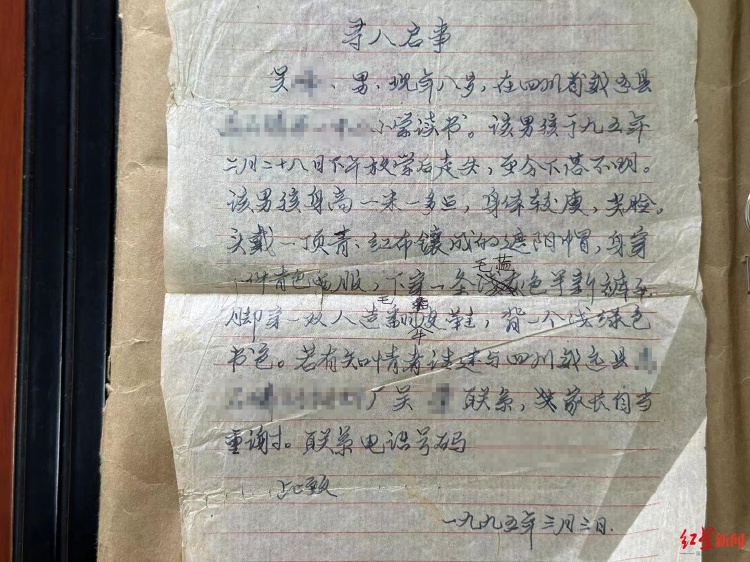 寻人启事
吴 、男、现年八岁,在四川省威远县
小学读书。该男孩于九五年
二月二十八日下午放学后走失,至今下落不明。
该男孩身高一米一多点,身体较瘦,尖脸。
头戴一顶青、红布镶成的遮阳帽,身穿
一件青色 服,下穿一条毛蓝色半新裤子
脚穿一双人造毛翻 皮鞋,背一个浅绿色
书包。若有知情者请速与四川威远县
厂吴 联系,家长自当
重谢。联系电话号码
此致
一九九五年三月三日.
红星新闻